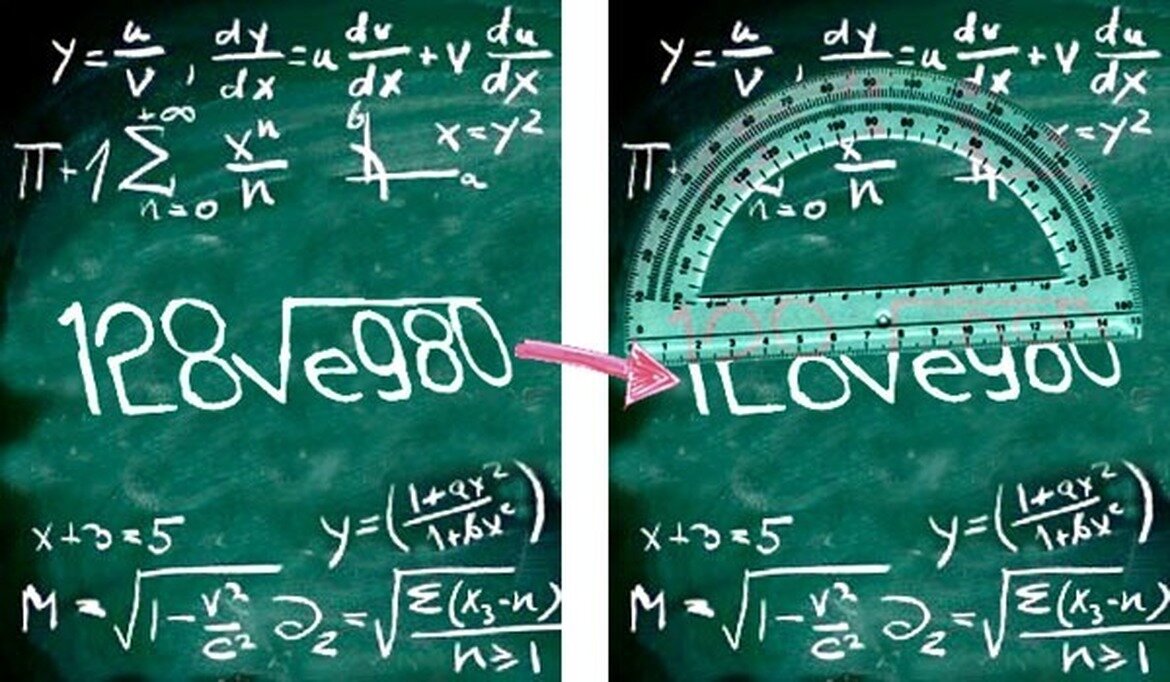 y = u/v , dy/dx = u dv/dx + v du/dx
π+1 +∞ Σ n=0 xⁿ/n b a x=y²
128√e980
x+3=5 y=(1+ax²/1+bx²)
M = √1-v²/c² ∂₂=√Σ(x₃-n)/n≥1
y = u/v , dy/dx = u dv/dx + v du/dx
π+ n=0 x/n x=y²
I Love you
x+3=5 y=(1+ax²/1+bx²)
M = √1-v²/c² ∂₂=√Σ(x₃-n)/n≥1